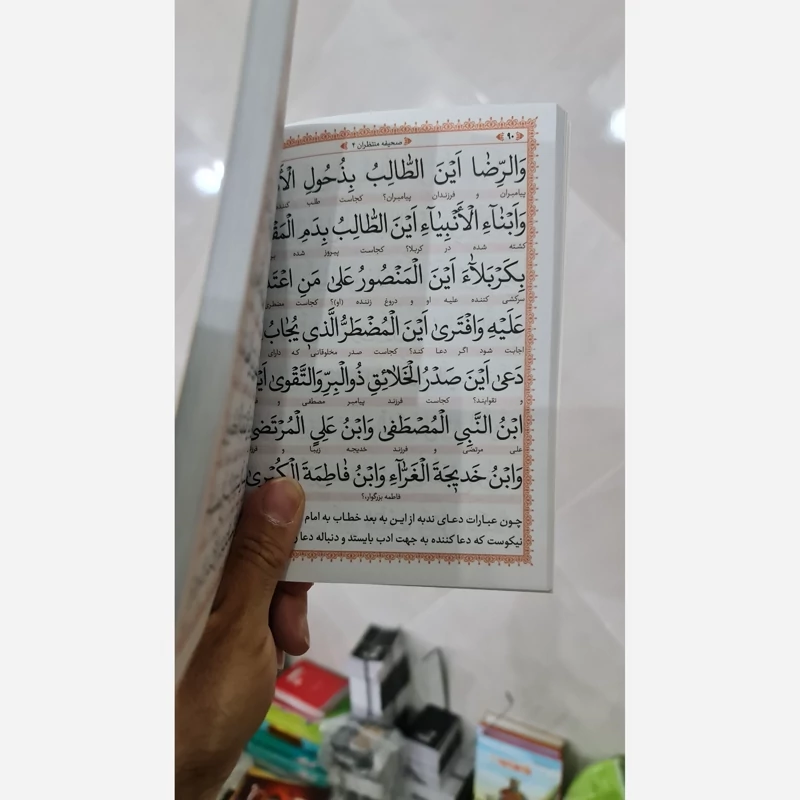 ۹۰
صحیفه منتظران ۲
وَالرِّضَا اَیْنَ الطّالِبُ بِذُحُولِ
پیامبران و فرزندان پیامبران؟ کجاست طلب کننده
وَاَبْنآءِ الْأَنْبِیآءِ اَیْنَ الطّالِبُ بِدَمِ
کشته شده در کربلا؟ کجاست پیروز شده بر
بِکَرْبَلآءَ اَیْنَ الْمَنْصُورُ عَلیٰ مَنِ
سرکشی کننده علیه او و دروغ زننده (او)؟ کجاست
عَلَیْهِ وَافْتَریٰ اَیْنَ الْمُضْطَرُّ الَّذی یُجابُ
اجابت شود اگر دعا کند؟ کجاست صدر مخلوقاتی که دارای
دَعیٰ اَیْنَ صَدْرُ الْخَلائِقِ ذُوالْبِرِّ وَالتَّقْویٰ
و تقوایند؟ کجاست فرزند پیامبر مصطفی و
ابْنُ النَّبِیِ الْمُصْطَفیٰ وَابْنُ عَلِیٍ الْمُرْتَضیٰ
علی مرتضی و فرزند خدیجه زیبا و
وَابْنُ خَدیجَةَ الْغَرّآءِ وَابْنُ فاطِمَةَ الْکُبْریٰ
فاطمه بزرگوار،؟
چون عبارات دعای ندبه از این به بعد خطاب به امام
نیکوست که دعا کننده به جهت ادب بایستد و دنباله دعا